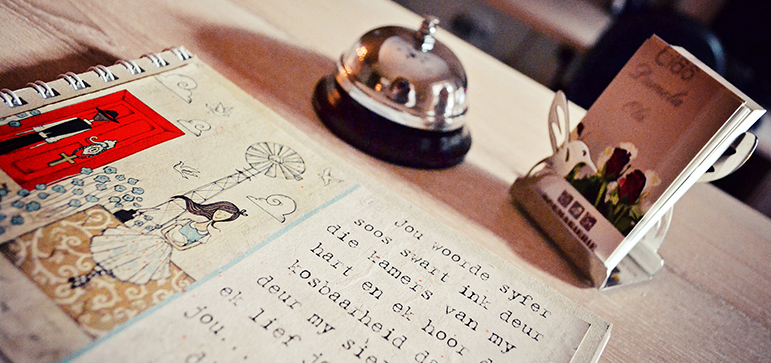 Jou woorde syfer
soos swart ink deur
die kamers van my
hart en ek hoor d
kosbaarheid d
deur my sie
ek lief jo
jou...